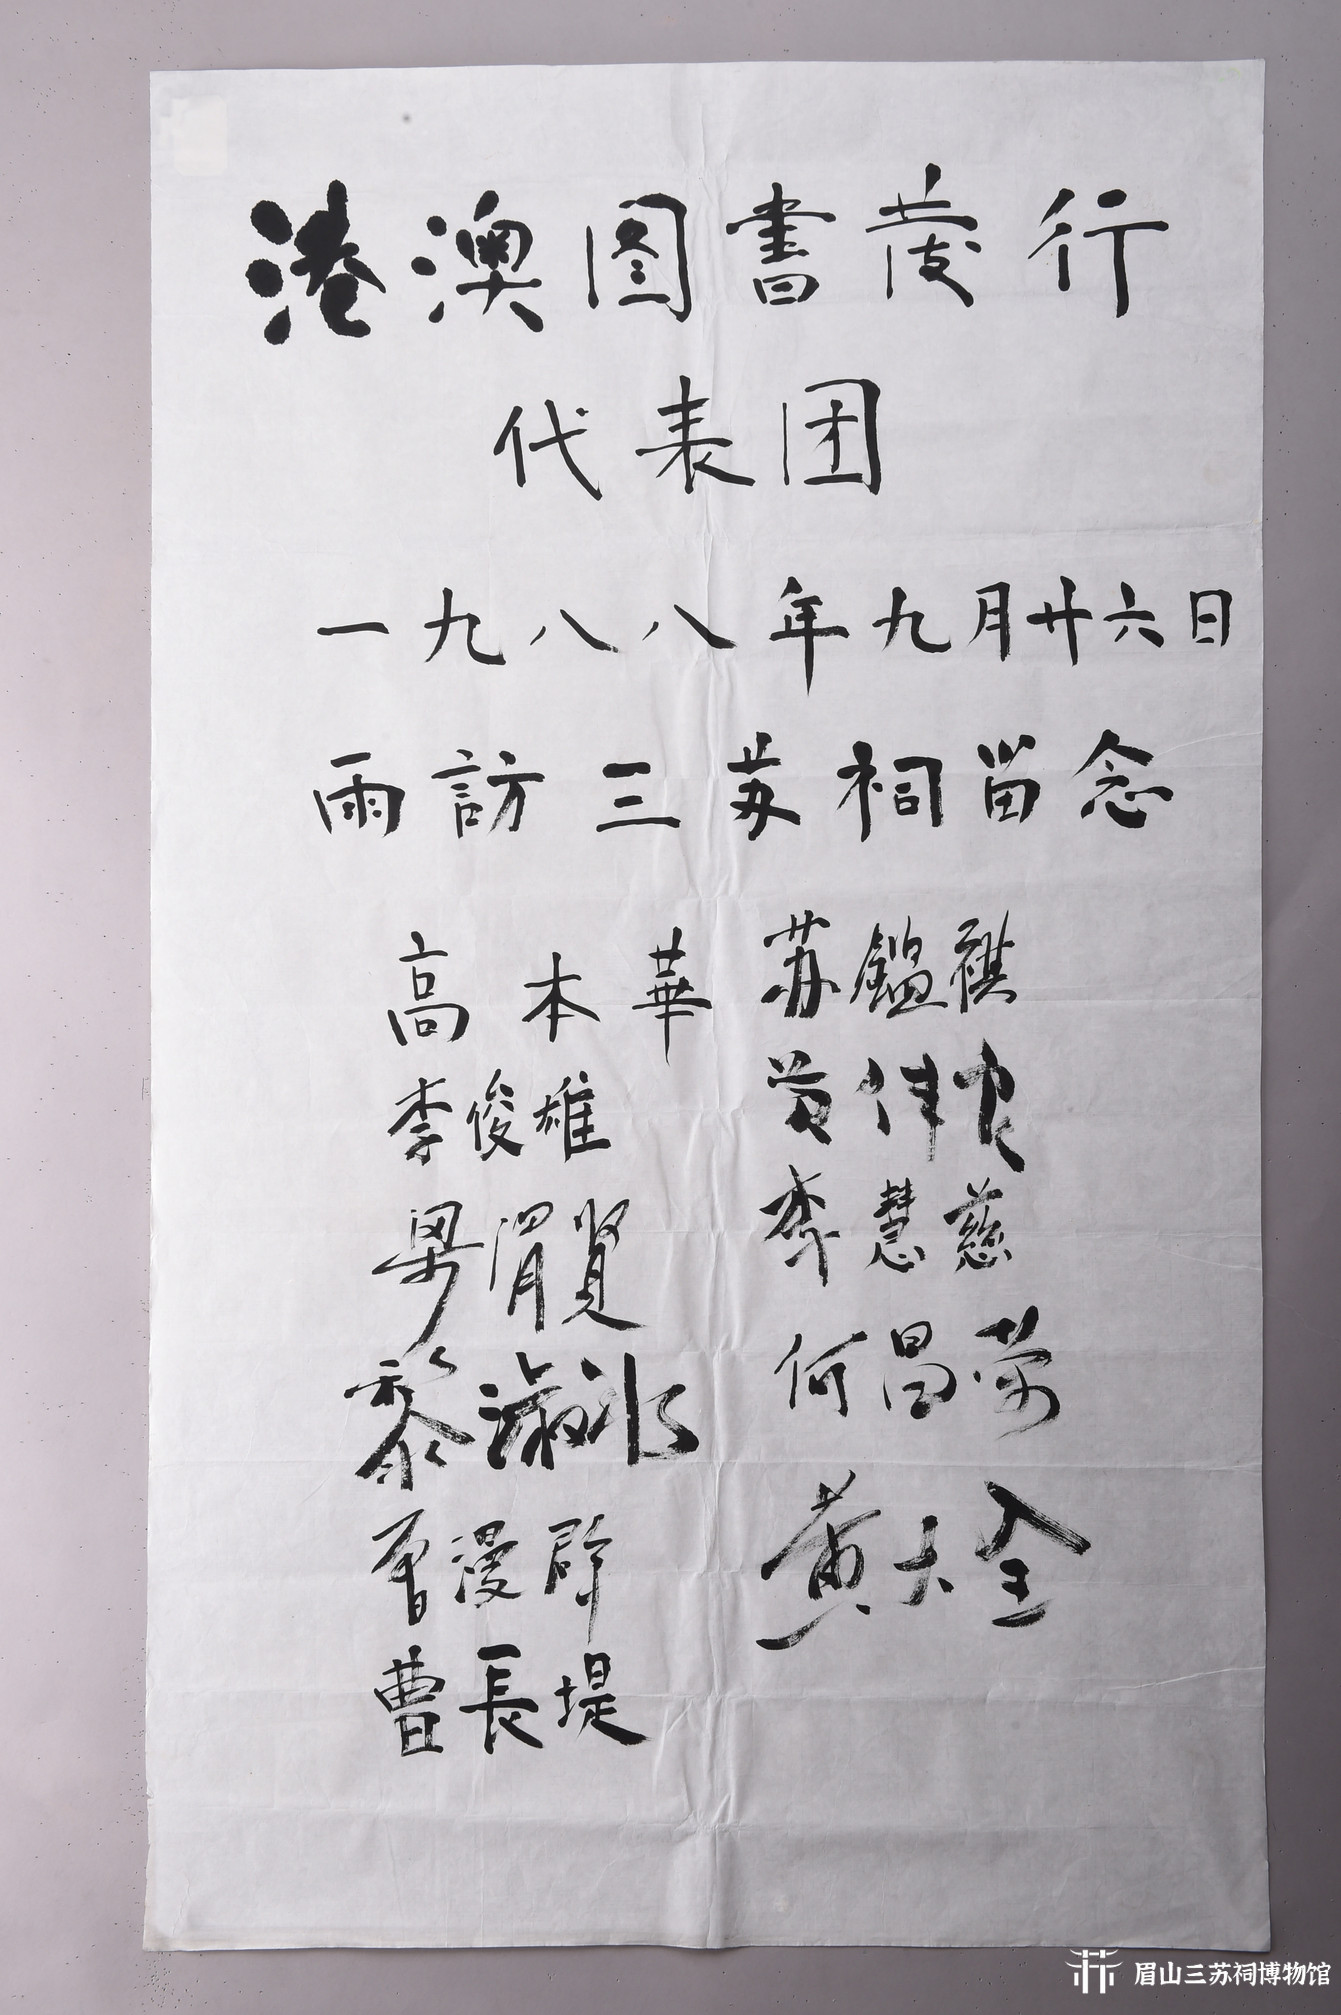 港澳图書发行
代表团
一九八八年九月廿六日
雨訪三苏祠留念
高本華
李俊雄
梁渭賢
黎淑冰
曾漫
曹長堤
苏鑑祺
黄伟良
李慧慈
何昌荣
黄大全
眉山三苏祠博物馆